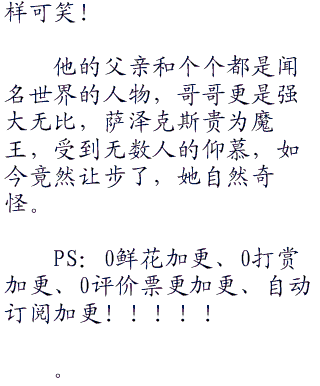 样可笑！
他的父亲和个个都是闻
名世界的人物，哥哥更是强
大无比，萨泽克斯贵为魔
王，受到无数人的仰慕，如
今竟然让步了，她自然奇
怪。
PS：0鲜花加更、0打赏
加更、0评价票更加更、自动
订阅加更！！！！！
。